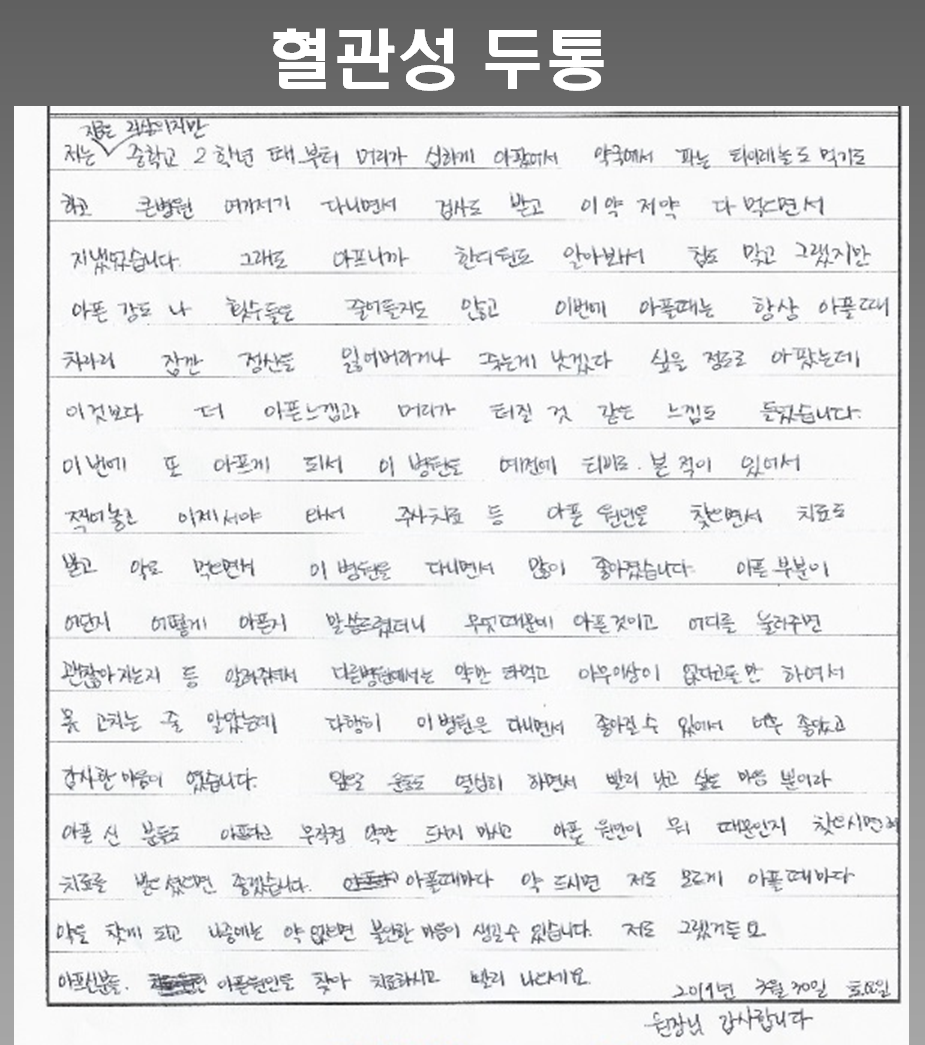 혈관성 두통
지금은 고3이지만
저는 중학교 2학년 때부터 머리가 심하게 아팠어서 약국에서 파는 타이레놀도 먹기도
하고 큰병원 여기저기 다니면서 검사도 받고 이약 저약 다 먹으면서
지냈었습니다. 그래도 아프니까 한의원도 알아봐서 침도 맞고 그랬지만
아픈 강도나 횟수들은 줄어들지도 않고 이번에 아플때는 항상 아플때
차라리 잠깐 정신을 잃어버리거나 죽는게 낫겠다 싶을 정도로 아팠는데
이것보다 더 아픈느낌과 머리가 터질 것 같은 느낌도 들었습니다.
이번에 또 아프게 되서 이 병원도 예전에 티비로 본 적이 있어서
적어놓고 이제서야 와서 주사치료 등 아픈 원인을 찾으면서 치료도
받고 약도 먹으면서 이 병원을 다니면서 많이 좋아졌습니다. 아픈부분이
어딘지 어떻게 아픈지 말씀드렸더니 무엇때문에 아픈것이고 어디를 눌러주면
괜찮아지는지 등 알려주셔서 다른병원에서는 약만 타먹고 아무이상이 없다고들만 하여서
못 고치는 줄 알았는데 다행히 이병원은 다니면서 좋아질 수 있어서 너무 좋았고
감사한 마음이 였습니다. 앞으로 운동도 열심히 하면서 빨리 낫고 싶은 마음 뿐이라
아프신 분들도 아프다고 무작정 약만 드시지 마시고 아픈 원인이 뭐 때문인지 찾으시면서
치료를 받으셨으면 좋겠습니다. 아플때마다 약 드시면 저도 모르게 아플때마다
약을 찾게 되고 나중에는 약 없으면 불안한 마음이 생길수 있습니다. 저도 그랬거든요.
아프신분들. 아픈원인을 찾아 치료하시고 빨리 나으세요.
2019년 3월 30일 토요일
원장님 감사합니다